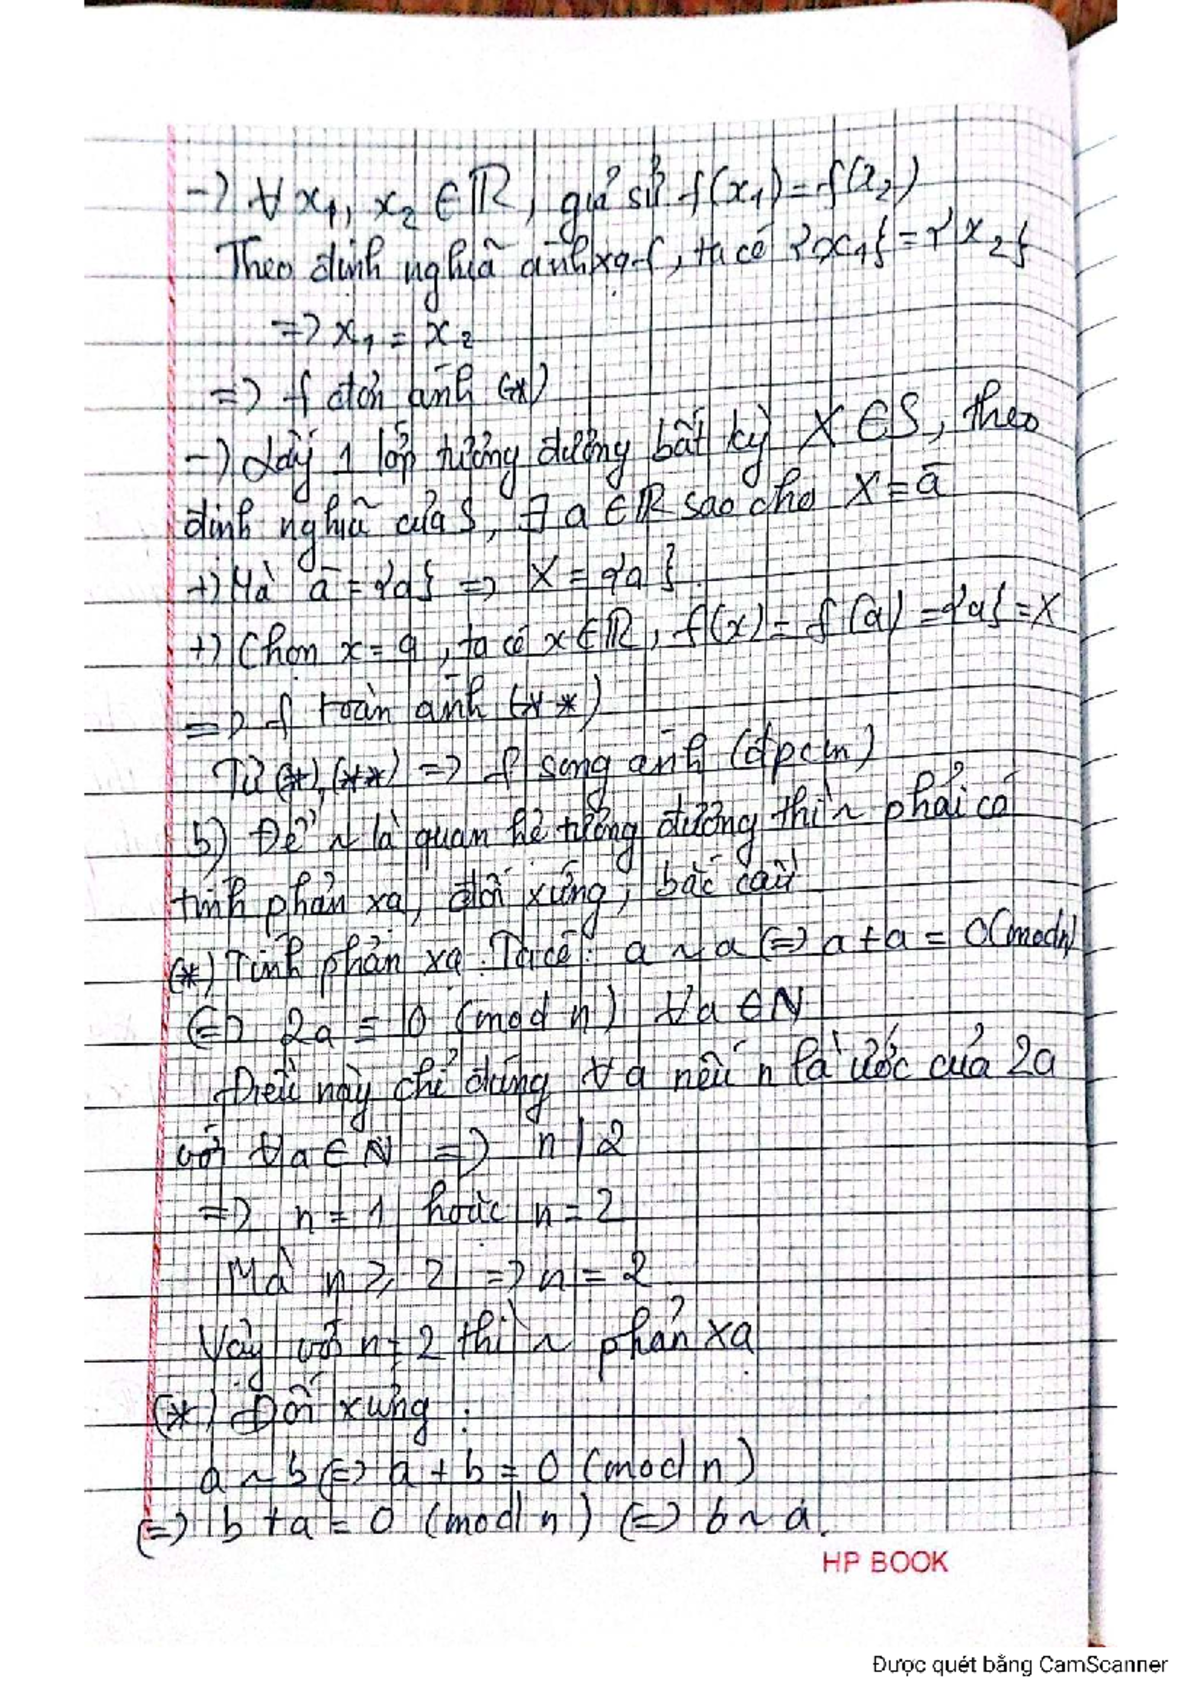 -) ∀ x₁, x₂ ∈ ℝ, giả sử f(x₁) = f(x₂)
Theo định nghĩa ánh xạ f, ta có {x₁} = {x₂}
=> x₁ = x₂
=> f đơn ánh (*)
-) Lấy 1 lớp tương đương bất kỳ X ∈ S, theo
định nghĩa của S, ∃ a ∈ ℝ sao cho X = ā
+) Mà ā = {a} => X = {a}.
+) Chọn x = a, ta có x ∈ ℝ, f(x) = f(a) = {a} = X
=> f toàn ánh (**)
Từ (*), (**) => f song ánh (đpcm)
b) Để ~ là quan hệ tương đương thì ~ phải có
tính phản xạ, đối xứng, bắc cầu
(*) Tính phản xạ. Ta có: a ~ a <=> a + a ≡ 0 (mod n)
<=> 2a ≡ 0 (mod n) ∀ a ∈ N
Điều này chỉ đúng ∀ a nếu n là ước của 2a
với ∀ a ∈ N => n | 2
=> n = 1 hoặc n = 2
Mà n ⩾ 2 => n = 2
Vậy với n = 2 thì ~ phản xạ
(*) Đối xứng :
a ~ b <=> a + b ≡ 0 (mod n)
<=> b + a ≡ 0 (mod n) <=> b ~ a.
HP BOOK
Được quét bằng CamScanner